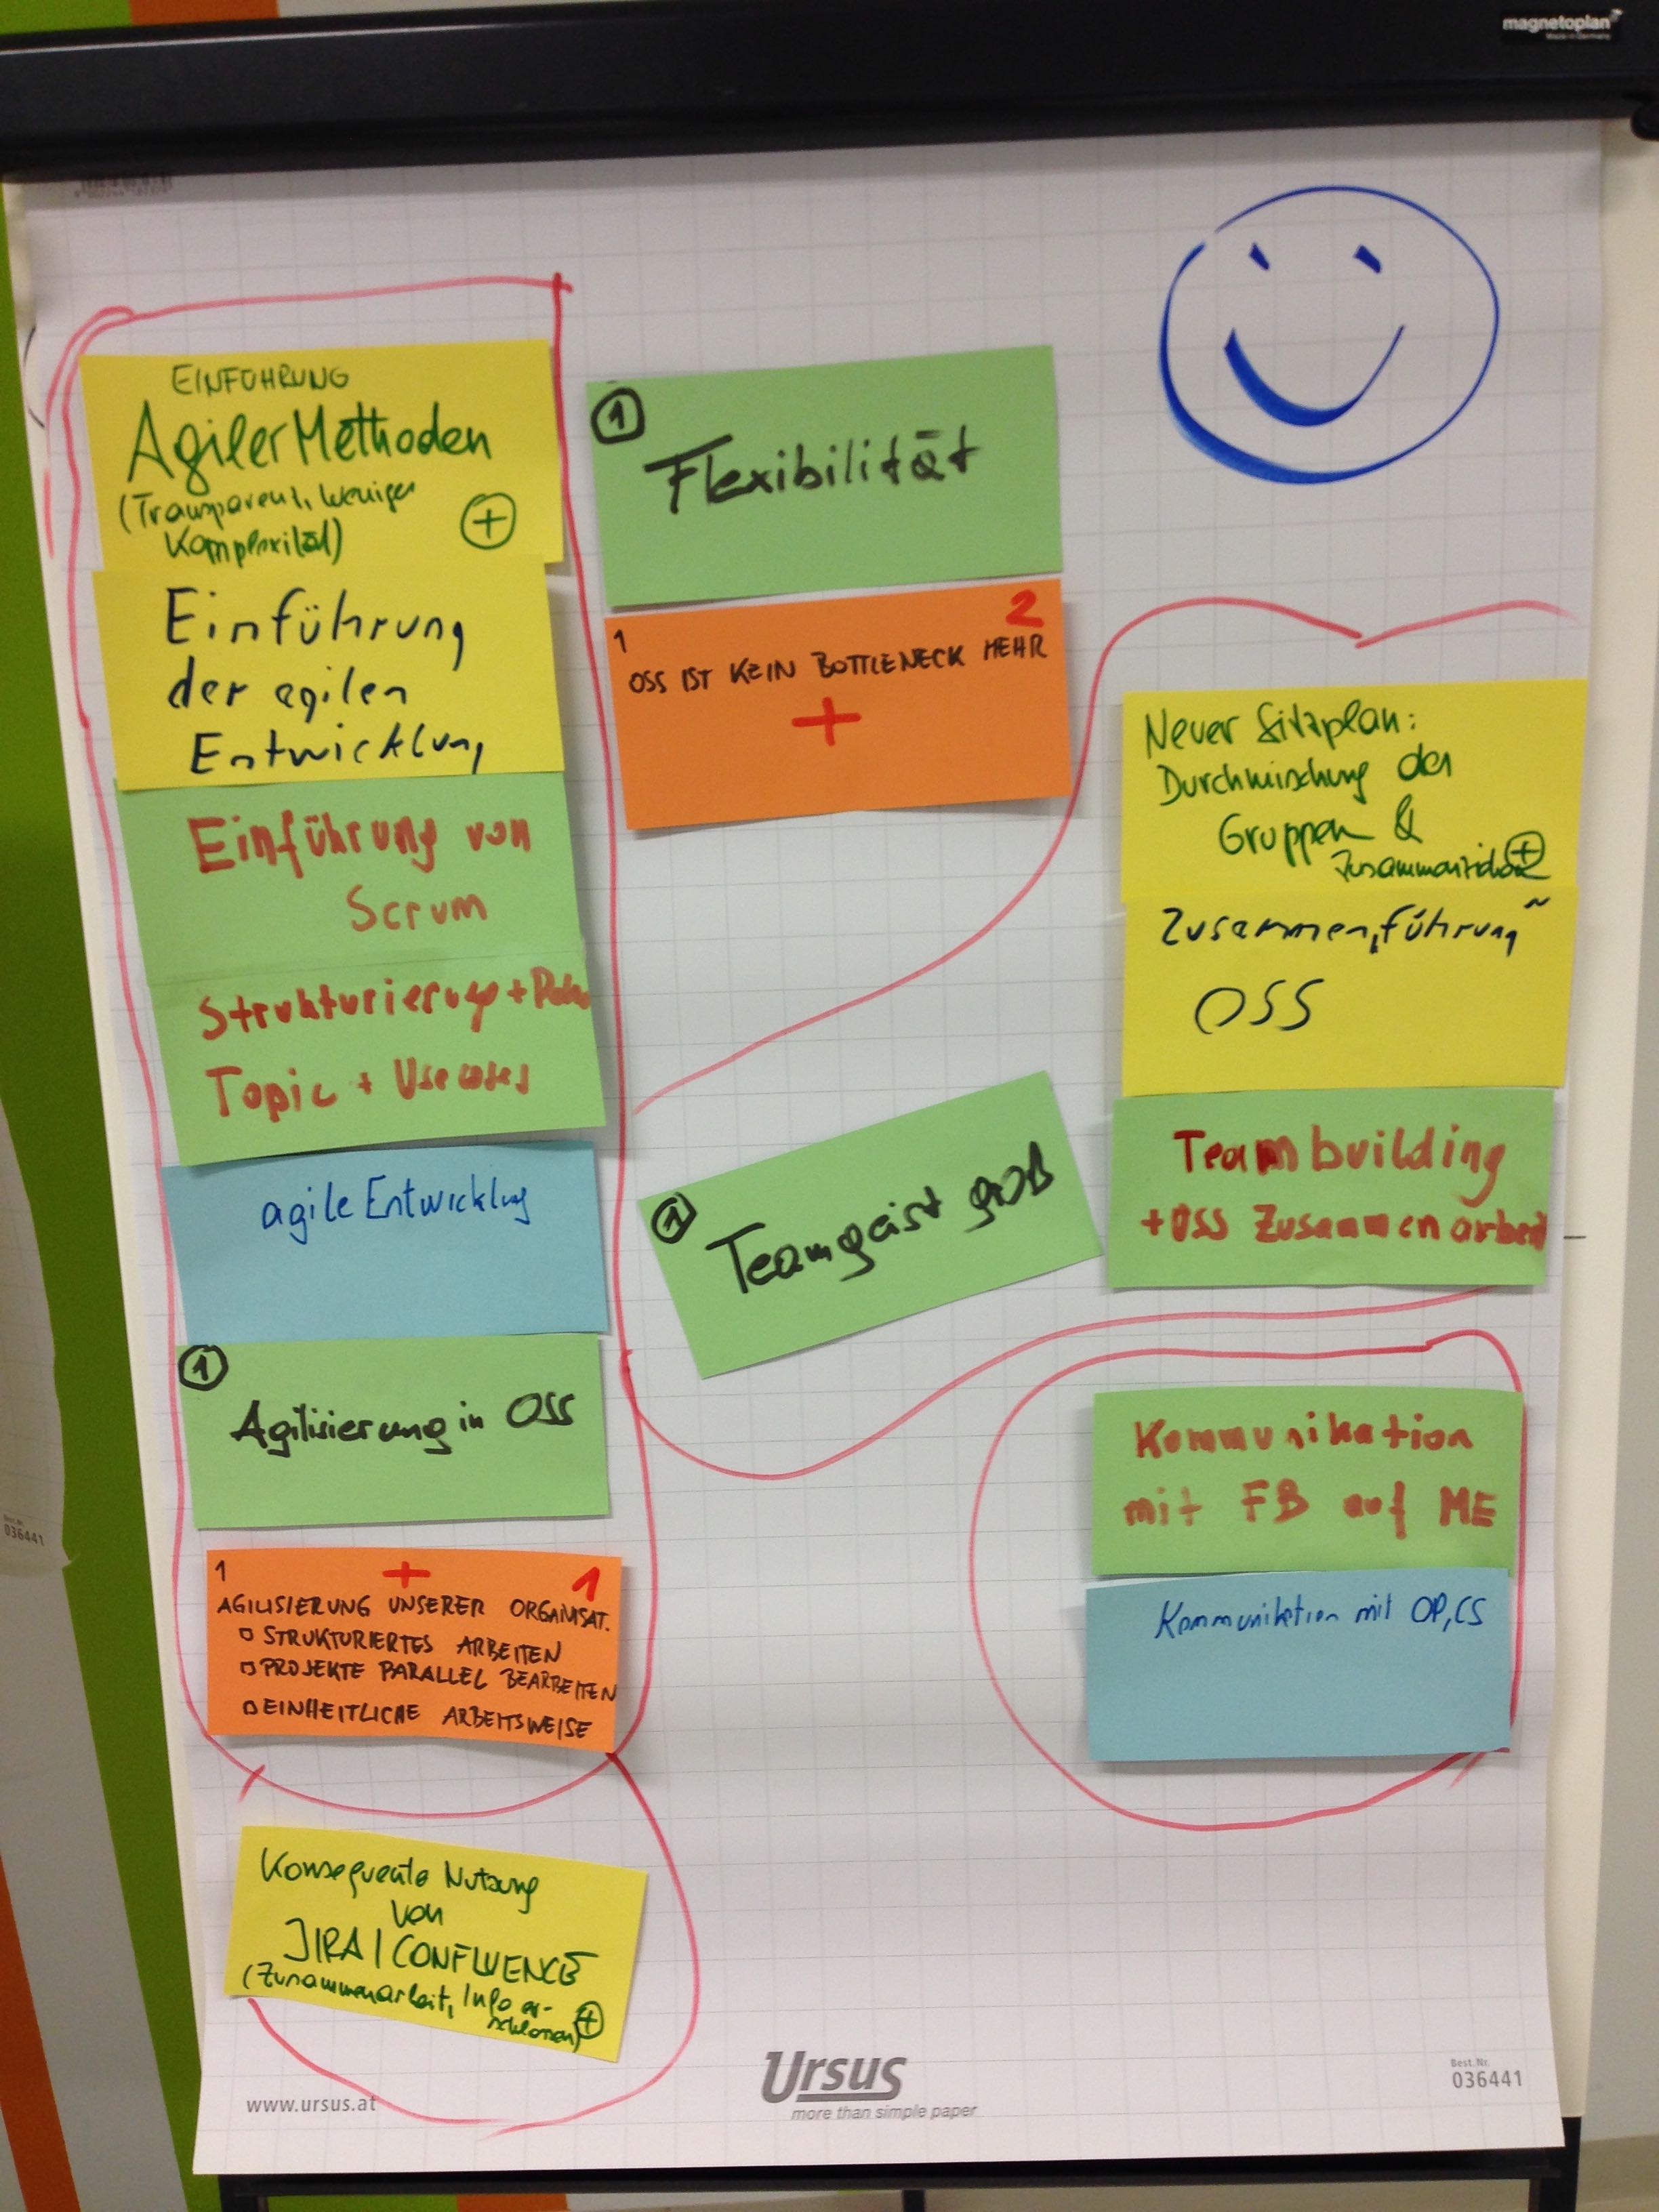 magnetoplan
Made in Germany
EINFÜHRUNG
Agiler Methoden
(Transparenz, weniger
Komplexität)
+
Einführung
der agilen
Entwicklung
Einführung von
Scrum
Strukturierung +
Topic + Usecases
agile Entwicklung
1
Agilisierung in OSS
1 + 1
AGILISIERUNG UNSERER ORGANISAT.
STRUKTURIERTES ARBEITEN
PROJEKTE PARALLEL BEARBEITEN
EINHEITLICHE ARBEITSWEISE
Konsequente Nutzung
von
JIRA | CONFLUENCE
(Zusammenarbeit, Info er-
schlossen)
+
1
Flexibilität
1 2
OSS IST KEIN BOTTLENECK MEHR
+
1
Teamgeist groß
Neuer Sitzplan:
Durchmischung der
Gruppen &
+
Zusammen„führung“
OSS
Teambuilding
+ OSS Zusammenarbeit
Kommunikation
mit FB auf ME
Kommunikation mit OP, CS
www.ursus.at
Ursus
more than simple paper
Best. Nr.
036441
Best. Nr.
036441